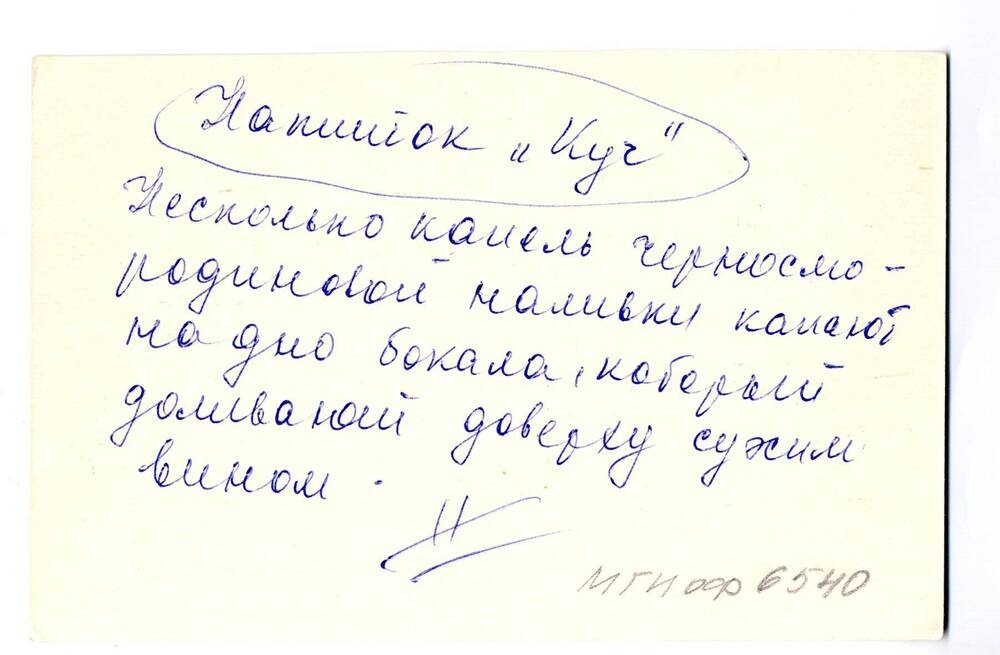 Напиток „Куч"
Несколько капель черносмо-
родиновой наливки капают
на дно бокала, который
доливают доверху сухим
вином.
МГИ оф 6540